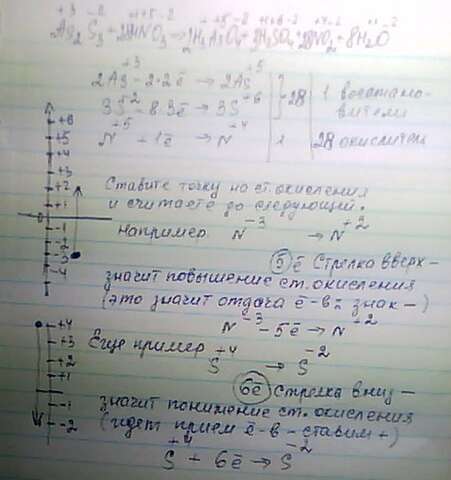 +3 -2 +5-2 +5-2 +6-2 +4-2 -2
As2S3 + 28HNO3 → 2H3AsO4 + 3H2SO4 + 28NO2 + 8H2O
2As+3 - 2·2ē → 2As+5
3S-2 - 8·3ē → 3S+6
-28
1 восстановители
N+5 + 1ē → N+4
1
28 окислитель
+6
+5
+4
+3
+2
+1
0
-1
-2
-3
-4
Ставите точку на ст. окисления
и считаете до следующей.
например N-3 → N+2
5ē Стрелка вверх –
значит повышение ст. окисления
(это значит отдача ē-в = знак –)
N-3 - 5ē → N+2
Еще пример
S+4 → S-2
6ē Стрелка вниз –
значит понижение ст. окисления
(идет прием ē-в - ставим +)
S+4 + 6ē → S-2
+4
+3
+2
+1
-1
-2